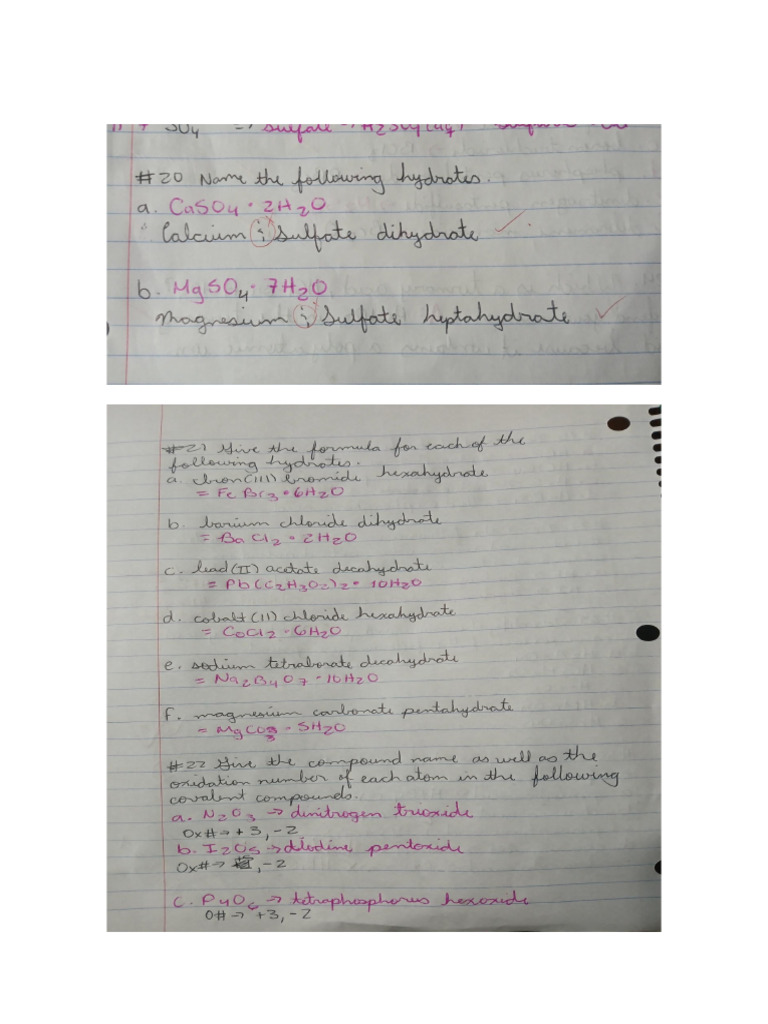 SO4 => sulfate → H2SO4(aq)
#20 Name the following hydrates.
a. CaSO4 • 2H2O
Calcium ; Sulfate dihydrate ✓
b. MgSO4 • 7H2O
Magnesium ; Sulfate heptahydrate ✓
#21 Give the formula for each of the
following hydrates.
a. Iron(III) bromide hexahydrate
= FeBr3 • 6H2O
b. barium chloride dihydrate
= BaCl2 • 2H2O
c. lead(II) acetate decahydrate
= Pb(C2H3O2)2 • 10H2O
d. cobalt(II) chloride hexahydrate
= CoCl2 • 6H2O
e. sodium tetraborate decahydrate
= Na2B4O7 • 10H2O
f. magnesium carbonate pentahydrate
= MgCO3 • 5H2O
#22 Give the compound name as well as the
oxidation number of each atom in the following
covalent compounds.
a. N2O3 → dinitrogen trioxide
Ox# → +3, -2
b. I2O5 → diiodine pentoxide
Ox# → , -2
c. P4O6 → tetraphosphorus hexoxide
O# → +3, -2